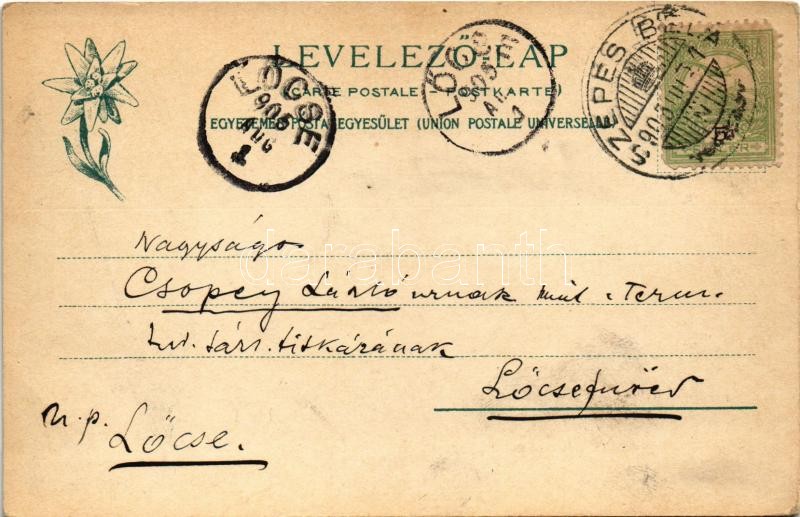 LEVELEZŐ-LAP
(CARTE POSTALE POSTKARTE)
EGYETEMES POSTA EGYESÜLET (UNION POSTALE UNIVERSELLE)
LŐCSE
905
AUG
1
LŐCSE
905
AUG
1
SZEPES BÉLA
905
5
Nagyságos
Csopey László urnak kir. Term.
tud. társ. titkárának
Lőcsefüred
u. p.
Lőcse.
darabanth